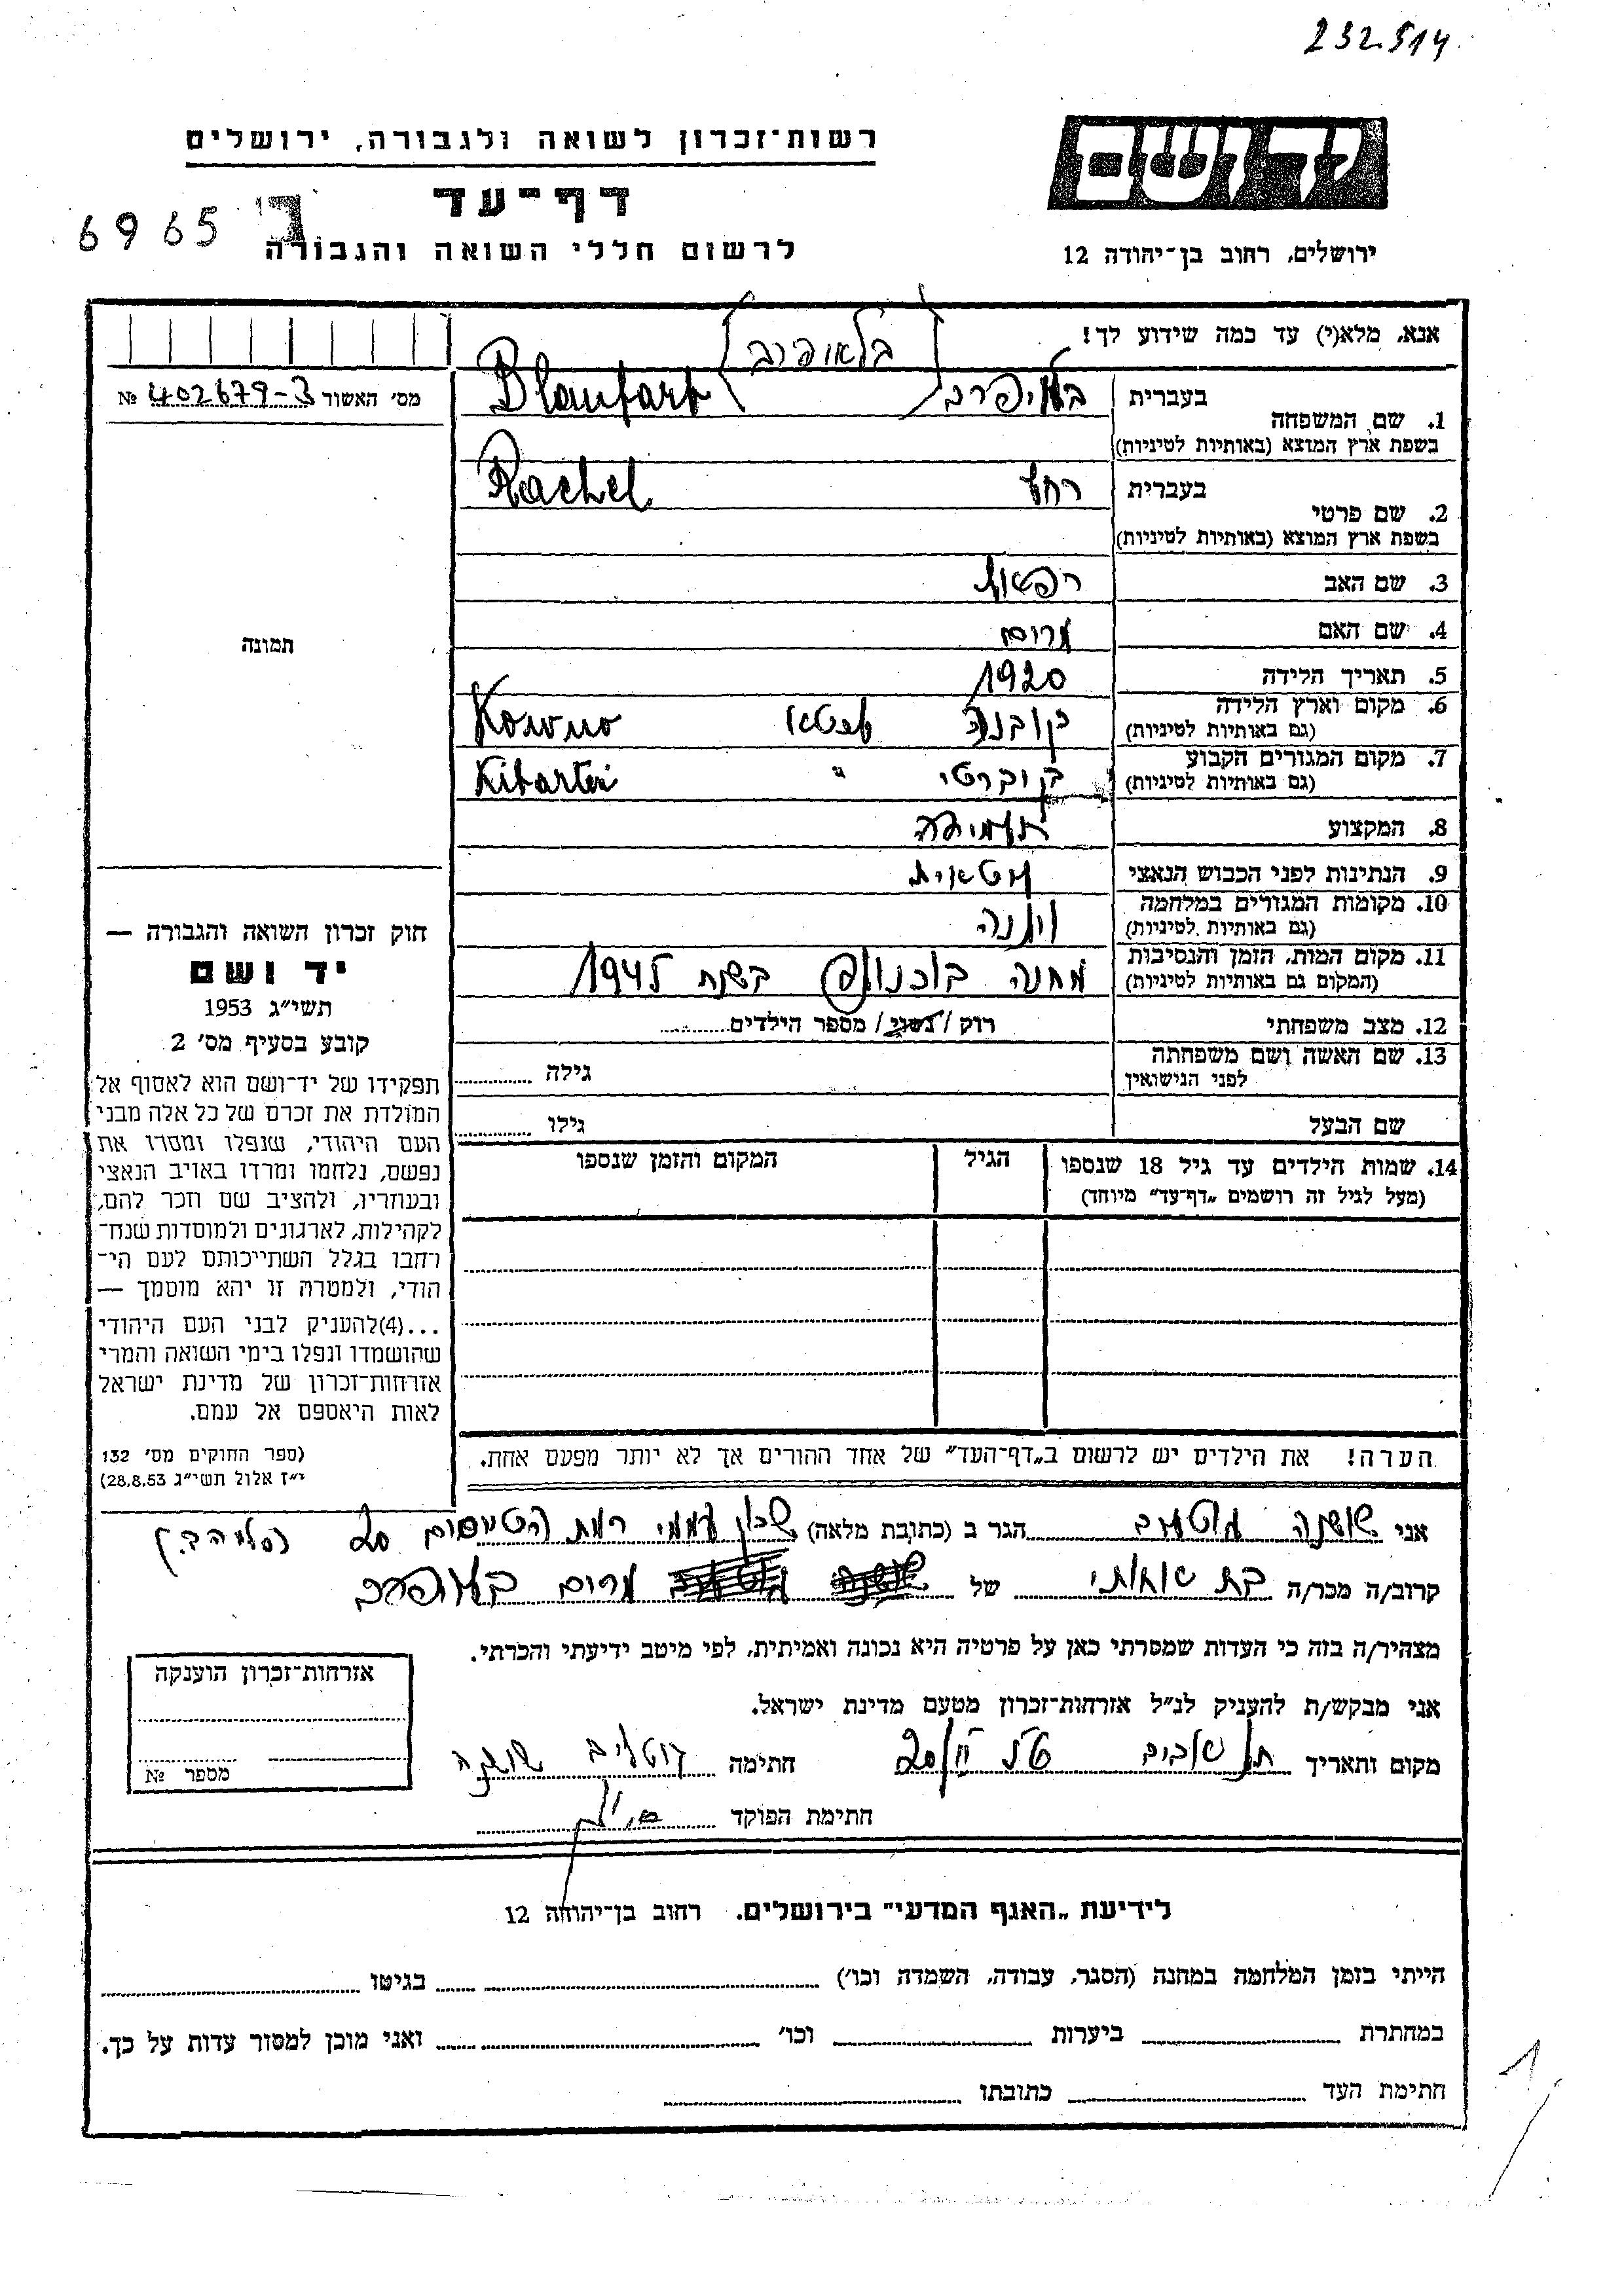 232.514
רשות־זכרון לשואה ולגבורה, ירושלים
יד ושם
דף־עד
6965
לרשום חללי השואה והגבורה
ירושלים, רחוב בן־יהודה 12
אנא, מלא(י) עד כמה שידוע לך!
בלאופרב
מס׳ האשור 402679-3 №
1. שם המשפחה
בעברית Blaufarb
בשפת ארץ המוצא (באותיות לטיניות)
2. שם פרטי
בעברית רחל Rachel
בשפת ארץ המוצא (באותיות לטיניות)
3. שם האב רפאל
4. שם האם מרים
5. תאריך הלידה 1920
6. מקום וארץ הלידה קובנה ליטא Kowno
(גם באותיות לטיניות)
7. מקום המגורים הקבוע קיברטי " Kibartei
(גם באותיות לטיניות)
8. המקצוע תלמידה
9. הנתינות לפני הכבוש הנאצי ליטאית
10. מקומות המגורים במלחמה וילנה
(גם באותיות לטיניות)
11. מקום המות, הזמן והנסיבות מחנה בשנת 1945
(המקום גם באותיות לטיניות)
12. מצב משפחתי רוק / נשוי / מספר הילדים
13. שם האשה ושם משפחתה גילה
לפני הנישואין
שם הבעל גילו
14. שמות הילדים עד גיל 18 שנספו הגיל המקום והזמן שנספו
(מעל לגיל זה רושמים „דף־עד" מיוחד)
הערה! את הילדים יש לרשום ב„דף־העד" של אחד ההורים אך לא יותר מפעם אחת.
תמונה
חוק זכרון השואה והגבורה —
יד ושם
תשי"ג 1953
קובע בסעיף מס׳ 2
תפקידו של יד־ושם הוא לאסוף אל
המולדת את זכרם של כל אלה מבני
העם היהודי, שנפלו ומסרו את
נפשם, נלחמו ומרדו באויב הנאצי
ובעוזריו, ולהציב שם וזכר להם,
לקהילות, לארגונים ולמוסדות שנח־
רחבו בגלל השתייכותם לעם הי־
הודי, ולמטרה זו יהא מוסמך —
...(4)להעניק לבני העם היהודי
שהושמדו ונפלו בימי השואה והמרי
אזרחות־זכרון של מדינת ישראל
לאות היאספם אל עמם.
(ספר החוקים מס׳ 132
י"ז אלול תשי"ג 28.8.53)
אני שושנה גוטליב הגר ב (כתובת מלאה) שכון עממי רמת הטייסים 20
קרוב/ה מכר/ה בת של מרים
מצהיר/ה בזה כי העדות שמסרתי כאן על פרטיה היא נכונה ואמיתית, לפי מיטב ידיעתי והכרתי.
אני מבקש/ת להעניק לנ"ל אזרחות־זכרון מטעם מדינת ישראל.
מקום ותאריך תל אביב חתימה גוטליב שושנה
חתימת הפוקד
אזרחות־זכרון הוענקה
מספר №
לידיעת „האגף המדעי" בירושלים. רחוב בן־יהודה 12
הייתי בזמן המלחמה במחנה (הסגר, עבודה, השמדה וכו׳) בגיטו
במחתרת ביערות וכו׳ ואני מוכן למסור עדות על כך.
חתימת העד כתובתו
1